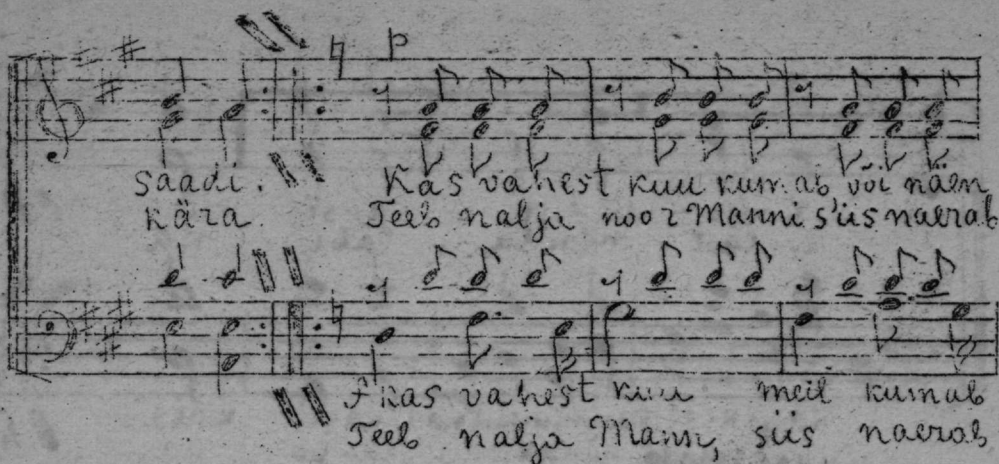 p
saadi. Kas vahest kuu kumab, või näen
kära. Teeb nalja noor Manni siis naerab
f kas vahest kuu meil kumab
Teeb nalja Mann, siis naerab